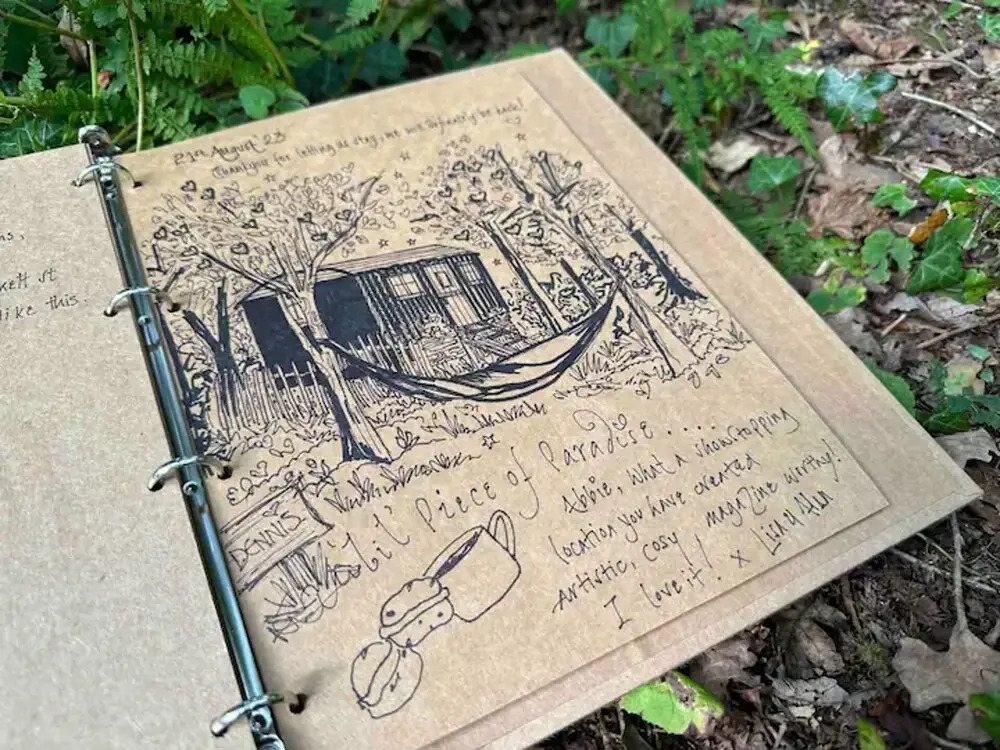 ns,
st
like this.
21st August '23
Thankyou for letting us stay, we will defiantly be back!
DENNIS
Lil' Piece of Paradise.....
Abbie, what a showstopping
location you have created
Artistic, cosy magazine worthy!
I love it! x